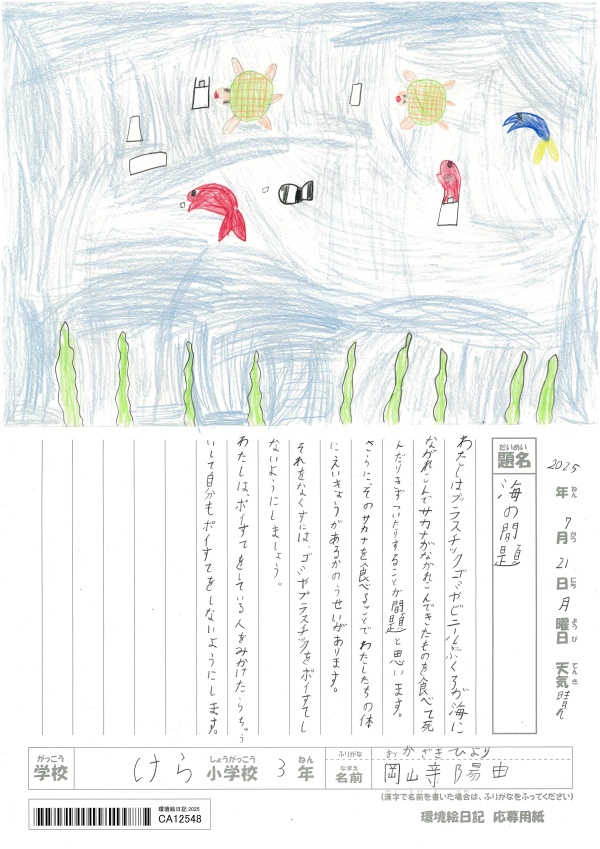 2025年7月21日月曜日 天気晴れ
ねん がつ にち ようび てんき
だいめい
題名
海の問題
わたしはプラスチックゴミやビニールぶくろが海に
ながれこんでサカナがながれこんできたものを食べて死
んだりきずついたりすることが問題と思います。
さらに、そのサカナを食べることでわたしたちの体
にえいきょうがあるかのうせいがあります。
それをなくすには、ゴミやプラスチックをポイすてし
ないようにしましょう。
わたしは、ポイすてをしている人をみかけたらちゅう
いして自分もポイすてをしないようにします。
がっこう
学校
けら
しょうがっこう
小学校
3
ねん
年
ふりがな
おかざき ひより
なまえ
名前
陽由
(漢字で名前を書いた場合は、ふりがなをふってください)
環境絵日記 2025
CA12548
環境絵日記 応募用紙